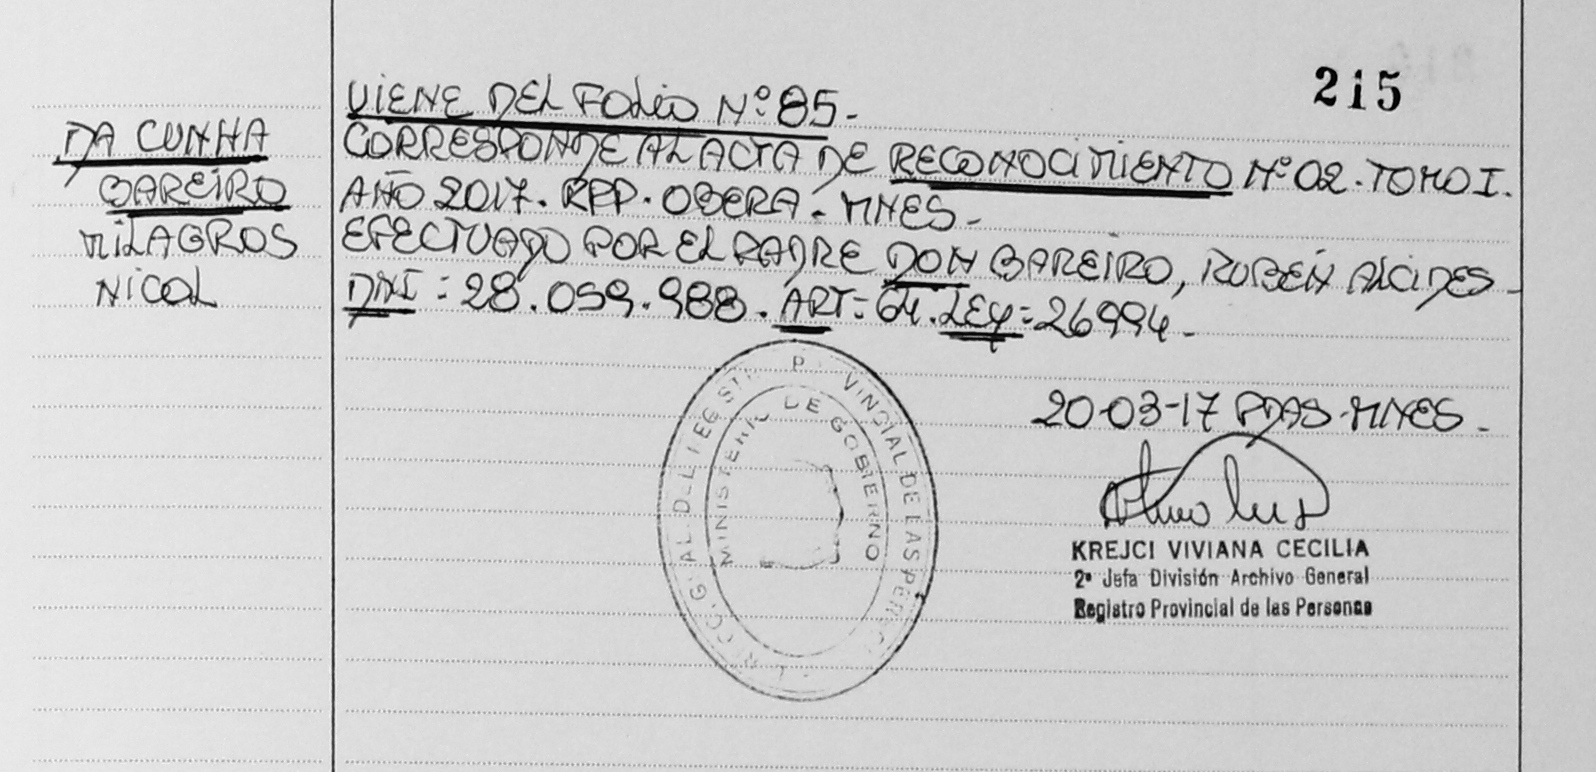 215
VIENE DEL FOLIO Nº 85-
DA CUNHA
BAREIRO
MILAGROS
NICOL
CORRESPONDE AL ACTA DE RECONOCIMIENTO Nº 02. TOMO I.
AÑO 2017. RPP. OBERA - MNES-
EFECTUADO POR EL PADRE DON BAREIRO, RUBÉN ALCIDES-
DNI: 28.059.988. ART= 64. LEY= 26994-
20-03-17 PDAS-MNES-
VINCIAL DE LAS
MINISTERIO DE GOBIERNO
KREJCI VIVIANA CECILIA
2ª Jefa División Archivo General
Registro Provincial de las Personas